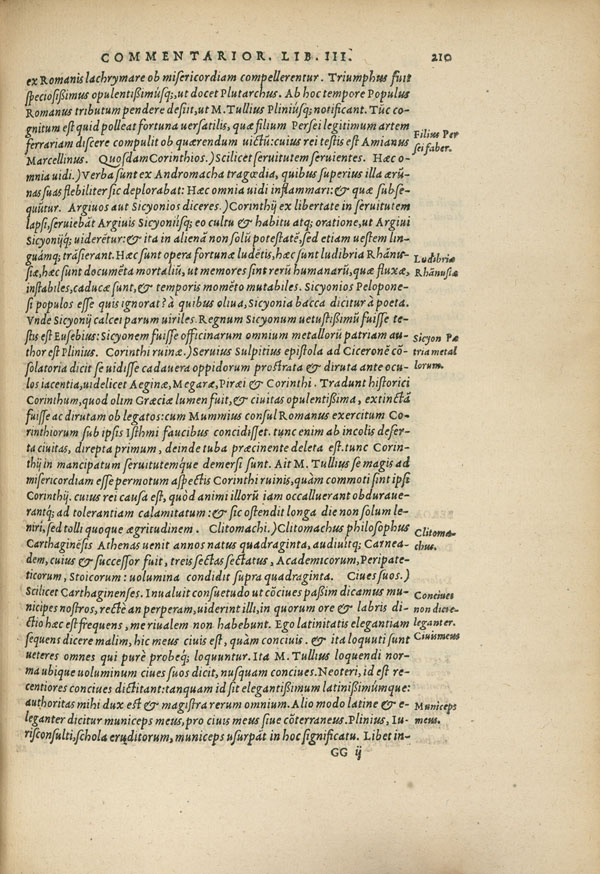 COMMENTARIOR. LIB. III. 210
ex Romanis lachrymare ob misericordiam compellerentur. Triumphus fuit
speciosißimus opulentißimúsq; ut docet Plutarchus. Ab hoc tempore Populus
Romanus tributum pendere desijt, ut M. Tullius Pliniusq; notificant. Tũc co-
gnitum est quid polleat fortuna uersatilis, quæ filium Persei legitimum artem
ferrariam discere compulit ob quærendum uictũ: cuius rei testis est Amianus
Filius Per
sei faber.
Marcellinus. Quosdam Corinthios.) Scilicet seruitutem seruientes. Hæc o-
mnia uidi.) Verba sunt ex Andromacha tragœdia, quibus superius illa ærũ-
nas suas flebiliter sic deplorabat: Hæc omnia uidi inflammari: & quæ subse-
quũtur. Argiuos aut Sicyonios diceres.) Corinthij ex libertate in seruitutem
lapsi, seruiebãt Argiuis Sicyonijsq; eo cultu & habitu atq; oratione, ut Argiui
Sicyonijq; uiderẽtur: & ita in alienã non solũ potestatẽ, sed etiam uestem lin-
guámq; trãsierant. Hæc sunt opera fortunæ ludẽtis, hæc sunt ludibria Rhãnu-
Ludibria
Rhãnusiæ
siæ, hæc sunt documẽta mortaliũ, ut memores sint rerũ humanarũ, quæ fluxæ,
instabiles, caducæ sunt, & temporis momẽto mutabiles. Sicyonios Pelopone-
si populos esse quis ignorat? à quibus oliua, Sicyonia bacca dicitur à poeta.
Vnde Sicyonij calcei parum uiriles. Regnum Sicyonum uetustißimũ fuisse te-
stis est Eusebius: Sicyonem fuisse officinarum omnium metallorũ patriam au-
Sicyon Pa
tria metal
lorum.
thor est Plinius. Corinthi ruinæ.) Seruius Sulpitius epistola ad Ciceronẽ cõ-
solatoria dicit se uidisse cadauera oppidorum prostrata & diruta ante ocu-
los iacentia, uidelicet Aeginæ, Megaræ, Piræi & Corinthi. Tradunt historici
Corinthum, quod olim Græciæ lumen fuit, & ciuitas opulentißima, extinctã
fuisse ac dirutam ob legatos: cum Mummius consul Romanus exercitum Co-
rinthiorum sub ipsis Isthmi faucibus concidisset. tunc enim ab incolis deser-
ta ciuitas, direpta primum, deinde tuba præcinente deleta est. tunc Corin-
thij in mancipatum seruitutemque demersi sunt. Ait M. Tullius se magis ad
misericordiam esse permotum aspectis Corinthi ruinis, quàm commoti sint ipsi
Corinthij. cuius rei causa est, quòd animi illorũ iam occalluerant obduraue-
rantq; ad tolerantiam calamitatum: & sic ostendit longa die non solum le-
niri, sed tolli quoque ægritudinem. Clitomachi.) Clitomachus philosophus
Clitoma-
chus.
Carthaginẽsis Athenas uenit annos natus quadraginta, audiuitq; Carnea-
dem, cuius & successor fuit, treis sectas sectatus, Academicorum, Peripate-
ticorum, Stoicorum: uolumina condidit supra quadraginta. Ciues suos.)
Scilicet Carthaginenses. Inualuit consuetudo ut cõciues paßim dicamus mu-
Conciues
non dici e-
leganter.
Ciuis meus
nicipes nostros, rectè an perperam, uiderint illi, in quorum ore & labris di-
ctio hæc est frequens, me riualem non habebunt. Ego latinitatis elegantiam
sequens dicere malim, hic meus ciuis est, quàm conciuis. & ita loquuti sunt
ueteres omnes qui purè probeq; loquuntur. Ita M. Tullius loquendi nor-
ma ubique uoluminum ciues suos dicit, nusquam conciues. Neoteri, id est re-
centiores conciues dictitant: tanquam id sit elegantißimum latinißimúmque:
authoritas mihi dux est & magistra rerum omnium. Alio modo latine & e-
Municeps
meus.
leganter dicitur municeps meus, pro ciuis meus siue cõterraneus. Plinius, Iu-
risconsulti, schola eruditorum, municeps usurpãt in hoc significatu. Libet in-
GG ij